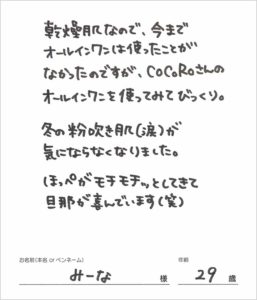 乾燥肌なので、今まで
オールインワンは使ったことが
なかったのですが、CoCoRoさんの
オールインワンを使ってみてびっくり。
冬の粉吹き肌(涙)が
気にならなくなりました。
ほっぺがモチモチッとしてきて
旦那が喜んでいます(笑)
お名前(本名 or ペンネーム) 年齢
みーな 様 29 歳